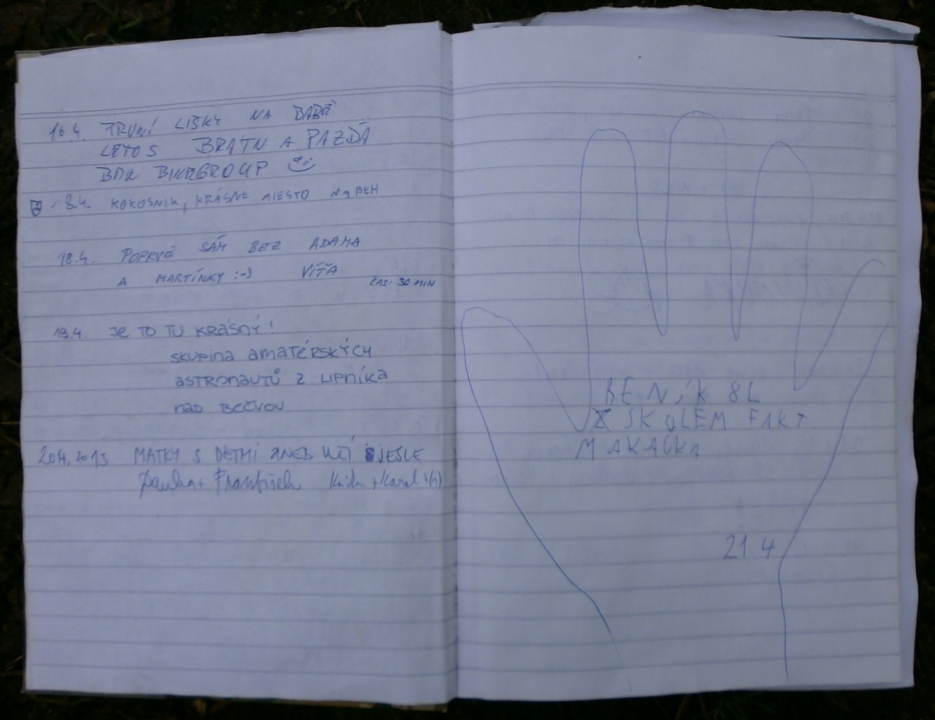 16.4. PRVNÍ LIŠKY NA BABĚ
LETOS BRATN A PAZĎA
BDR BIKEGROUP
8.4. KOKOSNIK, KRÁSNE MIESTO NA BEH
18.4. POPRVÉ SÁM BEZ ADAMA
A MARTÍNKY :-) VÍŤA
ČAS: 30 MIN
19.4. JE TO TU KRÁSNÝ!
SKUPINA AMATÉRSKÝCH
ASTRONAUTŮ Z LIPNÍKA
NAD BEČVOU
20.4.2013 MATKY S DĚTMI ANEB JESLE
František + Karel
BENÍK 8L
SKOLEM FAKT
MAKAČKA
21 4